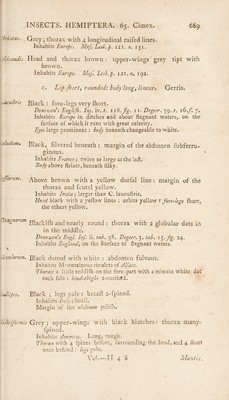 INSECTS. HEMIPTERA. 65. Cimex. 689
Grey; thorax with 4 longitudinal raised lines.
Inhabits Europe. Mus. Lesk. p. 121. n. 131.
Head and thorax brown: upper-wings grey tipt with
brown.
Inhabits Europe. Mus. Lesk. p. 121. n. 192.
c. Lip short, rounded: body long, linear. Gerris.
lacustris Black: fore-legs very short.
Donovan's English. Ins. iv. t. 118. fig. 11. Degeer. 39. t. 16. f. 7.
Inhabits Europe in ditches and about stagnant waters, on the
surface of which it runs with great celerity.
Eyes large prominent: body beneath changeable to white.
paludum. Black, silvered beneath: margin of the abdomen subferru-
ginous.
Inhabits France; twice as large as the last.
Body above striate, beneath silky.
Above brown with a yellow dorsal line: margin of the
thorax and scutel yellow.
Inhabits India; larger than C. lacustris.
Head black with 2 yellow lines: orbits yellow: fore-legs short,
the others yellow.
Stagnorum Blackish and nearly round: thorax with 2 globular dots in
in the middle.
Donovan's Engl. Inf. ii. tab. 58. Degeer. 3. tab. 15. fig. 24.
Inhabits England, on the surface of stagnant waters.
Black dotted with white: abdomen fulvous.
Inhabits Mountainous rivulets of Alsace.
Thorax a little reddish on the fore-part with a minute white dot
each side: hind-thighs 2-toothed.
Black; legs pale: breast 2-spined.
Inhabits Italy; small.
Margin of the abdomen palish.
Grey; upper-wings with black blotches: thorax many-
spined.
Inhabits America. Long, rough.
Thorax with 4 spines before, surrounding the head, and 4 short
ones behind: legs pale.
Vol.—II. 4 S Mantis.